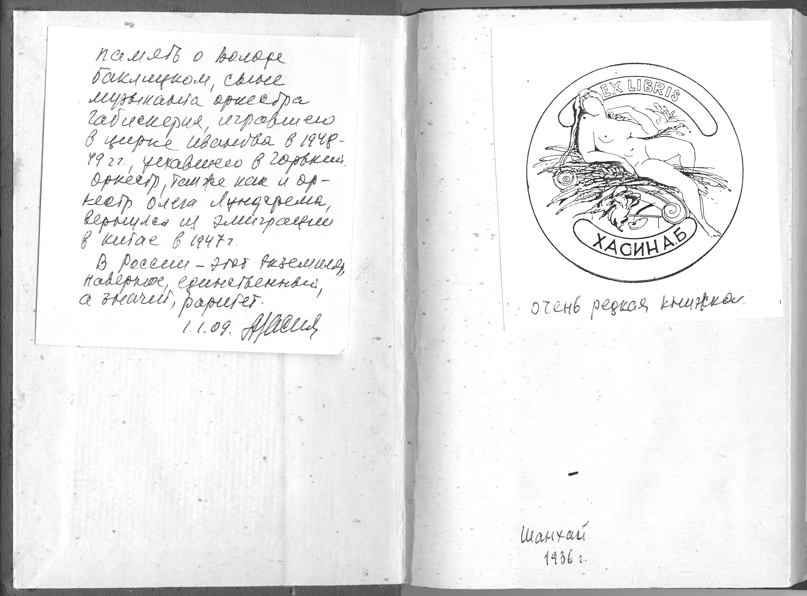 память о Володе
Баклицком, сыне
музыканта оркестра
Габискерия, игравшего
в цирке Иванова в 1948-
49 гг, уехавшего в Горький.
Оркестр, также как и ор-
кестр Олега Лундстрема,
вернулся из эмиграции
в Китае в 1947 г.
В России – этот экземпляр,
наверное, единственный,
а значит, раритет.
1.1.09.
EX LIBRIS
ХАСИН А.Б
очень редкая книжка.
Шанхай
1936 г.